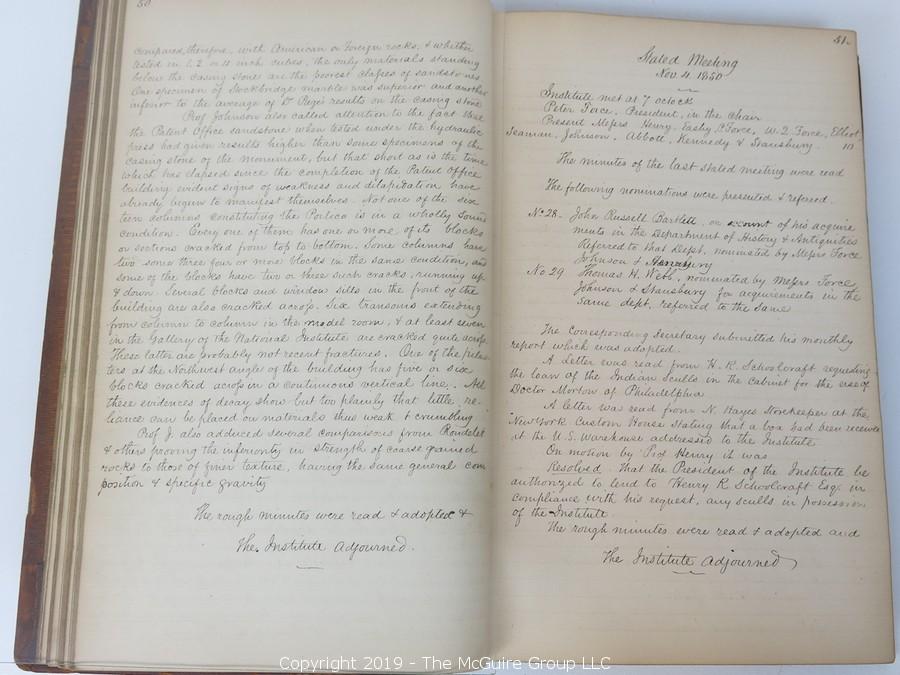 50
compared, therefore, with American or Foreign rocks, & whether
tested in 1, 2 or 4 inch cubes, the only materials standing
below the casing stone are the poorest classes of sandstones
One specimen of Stockbridge marble was superior and another
inferior to the average of Dr Page's results on the casing stone
Prof Johnson also called attention to the fact that
the Patent Office sandstone when tested under the hydraulic
press had given results higher than some specimens of the
casing stone of the monument, but that short as is the time
which has elapsed since the completion of the Patent Office
building evident signs of weakness and dilapidation have
already begun to manifest themselves. Not one of the six
teen columns constituting the Portico is in a wholly sound
condition. Every one of them has one or more of its blocks
or sections cracked from top to bottom. Some columns have
two some three four or more blocks in the same condition, and
some of the blocks have two or three such cracks, running up
& down. Several blocks and window sills in the front of the
building are also cracked across. Six transoms extending
from column to column in the model room, & at least seven
in the Gallery of the National Institute are cracked quite across
These latter are probably not recent fractures. One of the pilas
ters at the Northwest angle of the building has five or six
blocks cracked across in a continuous vertical line. All
these evidences of decay show but too plainly that little re-
liance can be placed on materials thus weak & crumbling
Prof J. also adduced several comparisons from Rondelet
& others proving the inferiority in strength of coarse grained
rocks to those of finer texture, having the same general com
position & specific gravity
The rough minutes were read & adopted &
The Institute Adjourned.
51.
Stated Meeting
Nov 4. 1850
Institute met at 7 oclock
Peter Force, President, in the Chair
Present Messrs Henry, Easby, P. Force, W. Q. Force, Elliot
Seaman, Johnson, Abbott, Kennedy & Stansbury. 10
The minutes of the last stated meeting were read
The following nominations were presented & referred.
No 28. John Russell Bartlett on account of his acquire
ments in the Department of History & Antiquities
Referred to that Dept. nominated by Messrs Force
Johnson &
No 29 Thomas H. Webb, nominated by Messrs Force,
Johnson & Stansbury for acquirements in the
same dept. referred to the same
The Corresponding Secretary submitted his monthly
report which was adopted.
A Letter was read from H. R. Schoolcraft requesting
the loan of the Indian Sculls in the Cabinet for the use of
Doctor Morton of Philadelphia
A letter was read from N. Hayes Storekeeper at the
New York Custom House Stating that a box had been received
at the U.S. Warehouse addressed to the Institute
On motion by Prof Henry it was
Resolved. That the President of the Institute be
authorized to lend to Henry R Schoolcraft Esq. in
compliance with his request, any sculls in possession
of the Institute
The rough minutes were read & adopted and
The Institute Adjourned
Copyright 2019 - The McGuire Group LLC